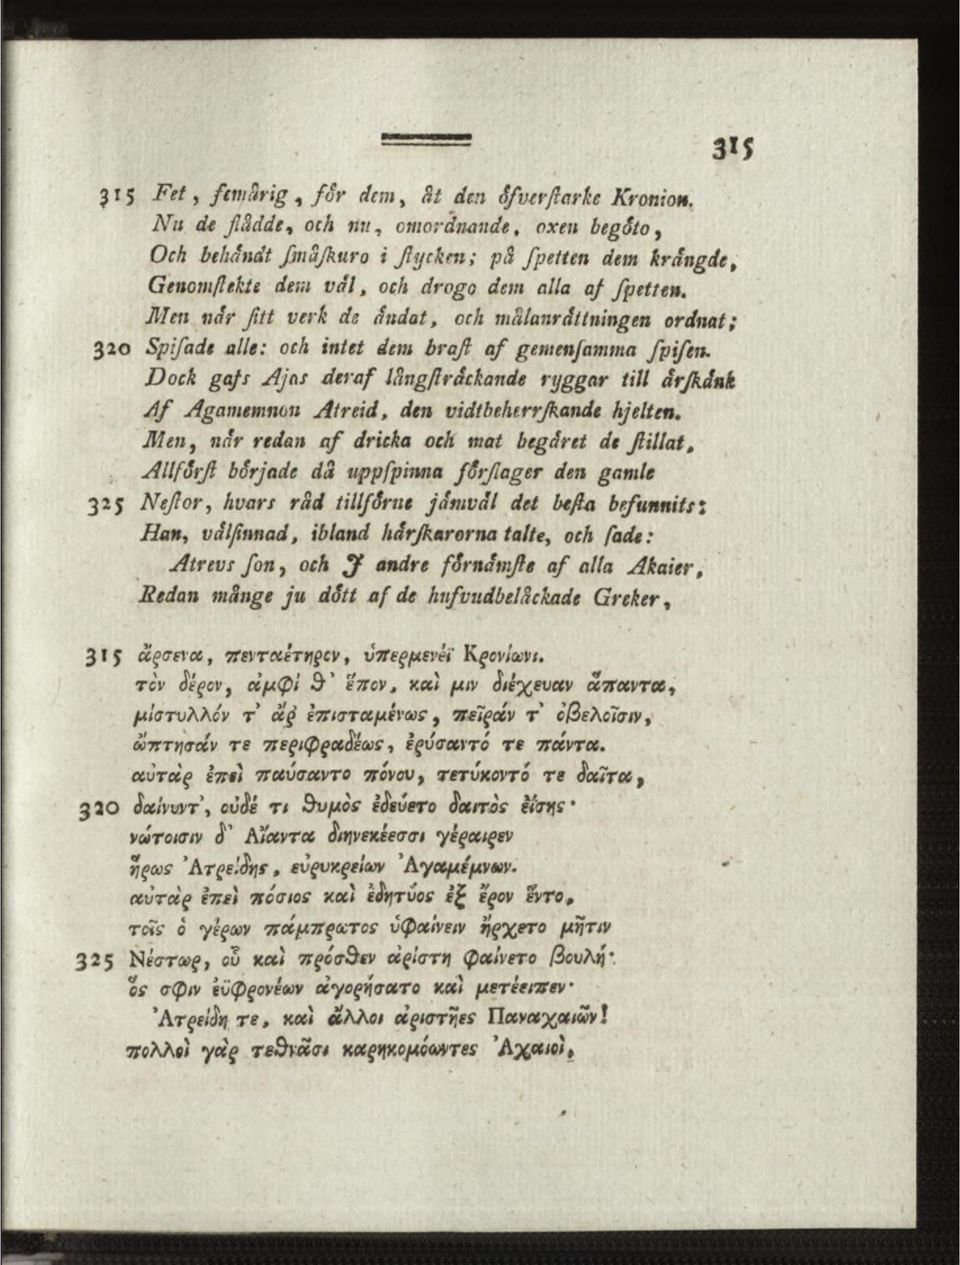 315
315 Fet, femårig, för dem, åt den öfverſtarke Kronion.
Nu de flådde, och nu, omordnande, oxen begöto,
Och behändt ſmåſkuro i ſtycken; på ſpetten dem krängde,
Genomſtekte dem väl, och drogo dem alla af ſpetten.
Men när ſitt verk de ändat, och målanrättningen ordnat;
320 Spiſade alle: och intet dem braſt af gemenſamma ſpiſen.
Dock gafs Ajas deraf långſträckande ryggar till ärſkänk
Af Agamemnon Atreid, den vidtbeherrſkande hjelten.
Men, när redan af dricka och mat begäret de ſtillat,
Allförſt började då uppſpinna förſlager den gamle
325 Neſtor, hvars råd tillförne jämväl det beſta befunnits:
Han, välſinnad, ibland härſkarorna talte, och ſade:
Atrevs ſon, och J andre förnämſte af alla Akaier,
Redan månge ju dött af de hufvudbelåckade Greker,
315 ἄρσενα, πενταέτηρον, ὑπερμενέϊ Κρονίωνι.
τὸν δέρον, ἀμφί θ' ἕπον, καὶ μιν διέχευαν ἅπαντα,
μίστυλλόν τ' ἄρ ἐπισταμένως, πεῖράν τ' ὀβελοῖσιν,
ὤπτησάν τε περιφραδέως, ἐρύσαντό τε πάντα.
αὐτὰρ ἐπεὶ παύσαντο πόνου, τετύκοντό τε δαῖτα,
320 δαίνυντ', οὐδέ τι θυμὸς ἐδεύετο δαιτὸς ἐΐσης·
νώτοισιν δ' Αἴαντα διηνεκέεσσι γέραιρεν
ἥρως Ἀτρείδης, εὐρυκρείων Ἀγαμέμνων.
αὐτὰρ ἐπεὶ πόσιος καὶ ἐδητύος ἐξ ἔρον ἕντο,
τοῖς ὁ γέρων πάμπρωτος ὑφαίνειν ἤρχετο μῆτιν
325 Νέστωρ, οὗ καὶ πρόσθεν ἀρίστη φαίνετο βουλή·
ὅς σφιν ἐϋφρονέων ἀγορήσατο καὶ μετέειπεν·
Ἀτρείδη τε, καὶ ἄλλοι ἀριστῆες Παναχαιῶν!
πολλοὶ γὰρ τεθνᾶσι καρηκομόωντες Ἀχαιοὶ,